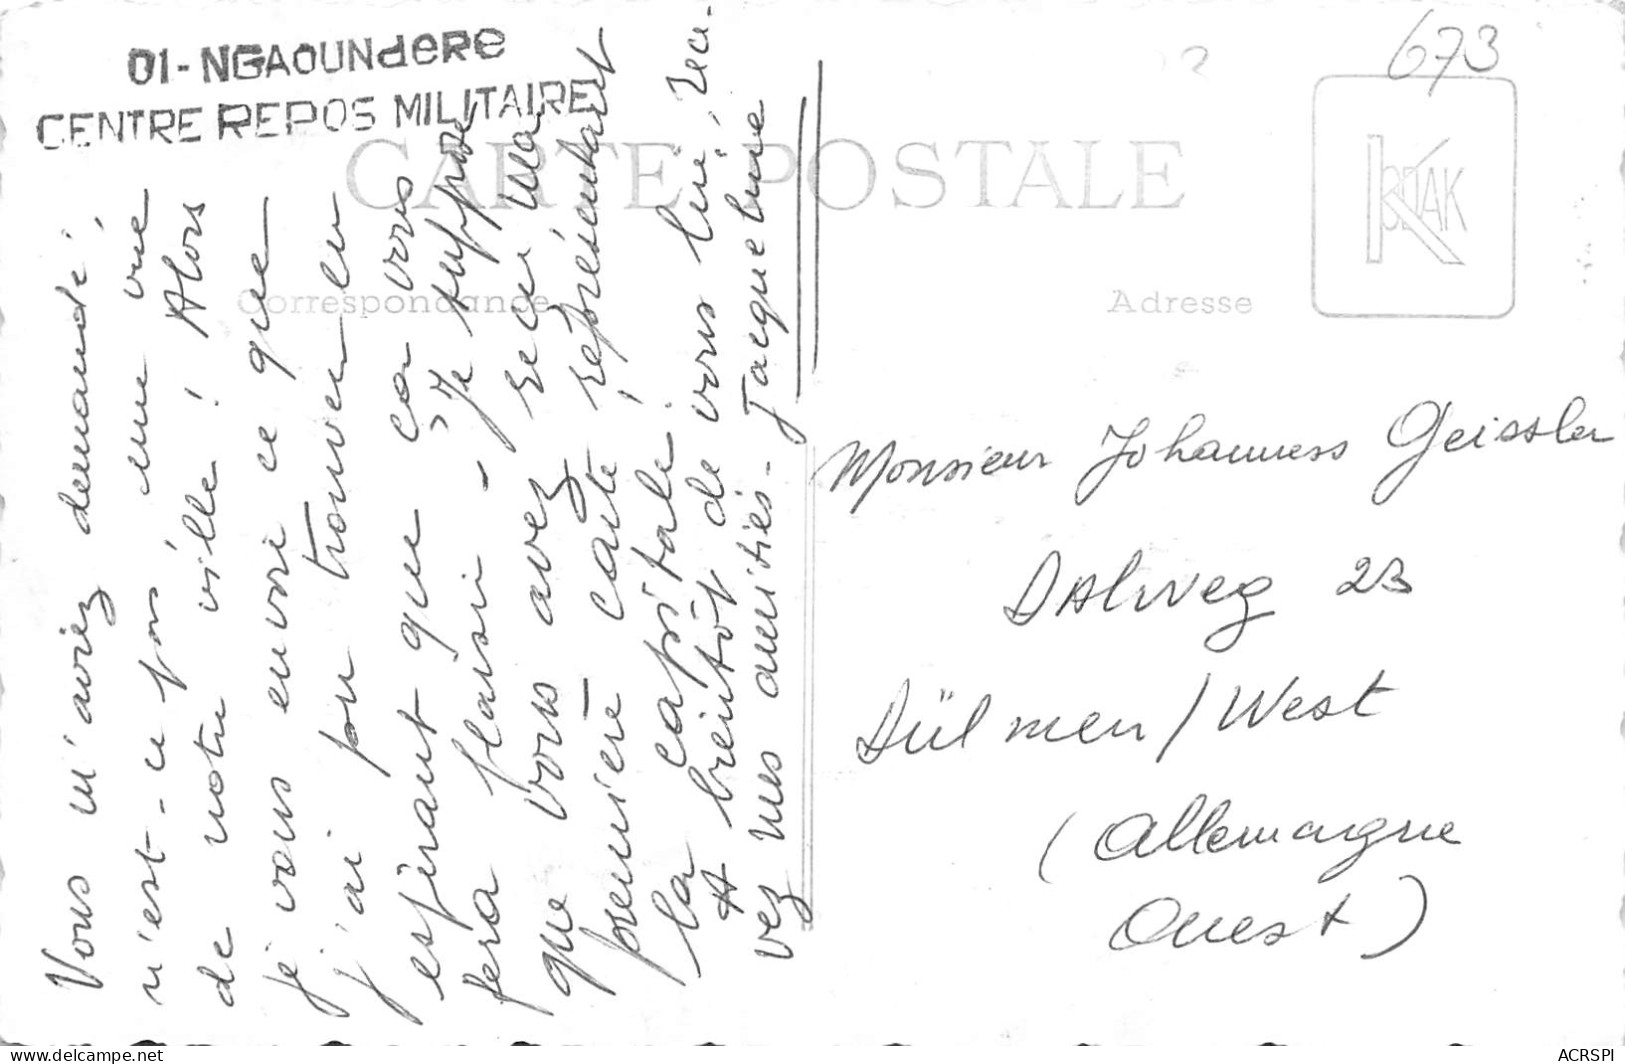 01-NGAOUNdeRe
CENTRE REPOS MILITAIRE
673
CARTE POSTALE
KODAK
Correspondance
Adresse
Vous m'aviez demandé,
n'est-ce pas, une vue
de notre ville! Alors
je vous envoie ce que
j'ai pu trouver en
espérant que ça vous
fera plaisir - Je suppose
que vous avez reçu ma
première carte représentant
la capitale!
A bientôt de vous lire, rece-
vez mes amitiés. Jacqueline
Monsieur Johanness Geissler
Dalweg 23
Dülmen / West
(Allemagne
Ouest)
delcampe.net
ACRSPI